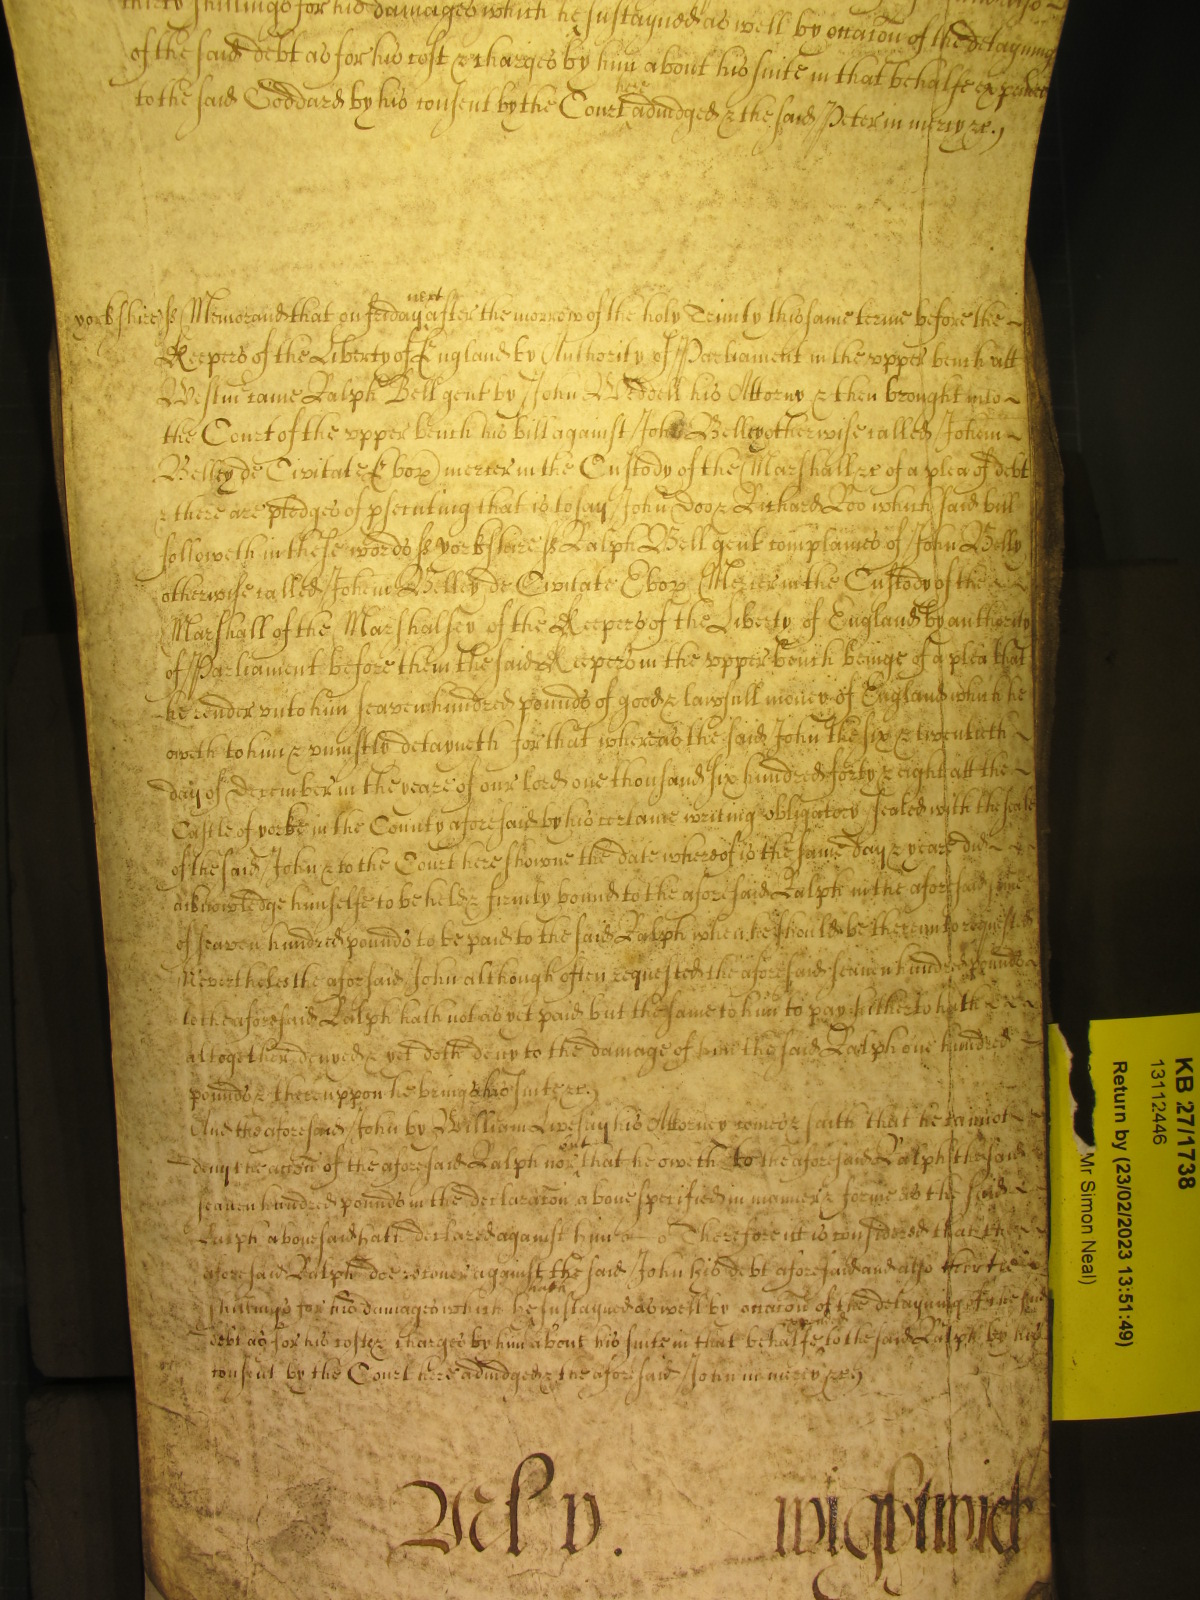 thirty shillings for his damages which he sustayned as well by occacon of the detayning
of the said debt as for his cost & charges by him about his suite in that behalfe expended
to the said Goddard by his consent by the Court here adiudged & the said Peter in mercy &c.
yorkshire ss Memorand that on friday next after the morrow of the holy Trinity this same terme before the
Keepers of the Liberty of England by Authority of Parliament in the vpper bench att
Westm came Ralph Bell gent by John Weddell his Attorny & then brought into
the Court of the vpper bench his bill against John Belley otherwise called Johem
Belley de Civitate Ebor mercer in the Custody of the Marshall &c of a plea of debt
& there are pledges of psecuting that is to say John Doo & Richard Roo which said bill
followeth in these words ss yorkshire ss Ralph Bell gent complaines of John Belly
otherwise called Johem Belley de Civitate Ebor Mercer in the Custody of the
Marshall of the Marshalsey of the Keepers of the Liberty of England by authority
of Parliament before them the said Keepers in the vpper bench beinge of a plea that
he render vnto him seaven hundred pounds of good & lawfull money of England which he
oweth to him & vniustly detayneth for that whereas the said John the six & twentieth
day of December in the yeare of our lord one thousand six hundred forty & eight att the
Castle of yorke in the County aforesaid by his certaine writing obligatory sealed with the seale
of the said John & to the Court here showne the date whereof is the same day & yeare did
acknowledge himselfe to be held & firmly bound to the aforesaid Ralph in the aforesaid some
of seaven hundred pounds to be paid to the said Ralph when he should be therevnto requested
Neverthelesse the aforesaid John although often requested the aforesaid seaven hundred pounds
to the aforesaid Ralph hath not as yet paid but the same to him to pay hitherto hath
altogether denyed & yet doth deny to the damage of him the said Ralph one hundred
pounds & therevppon he brings his suite &c.
And the aforesaid John by William Livesay his Attorney comes & saith that he cannot
deny the accon of the aforesaid Ralph nor but that he oweth to the aforesaid Ralph the said
seaven hundred pounds in the declaracon above specified in manner & forme as the said
Ralph abovesaid hath declared against him Therefore it is considered that the
aforesaid Ralph doe recover against the said John his debt aforesaid and also thirtie
shillings for his damages which he hath sustayned as well by occacon of the detayning of the said
debt as for his costes & charges by him about his suite in that behalfe expended to the said Ralph by his
consent by the Court here adiudged & the aforesaid John in mercy &c.
Wightwick
KB 27/1738
13112446
Return by (23/02/2023 13:51:49)
Mr Simon Neal)